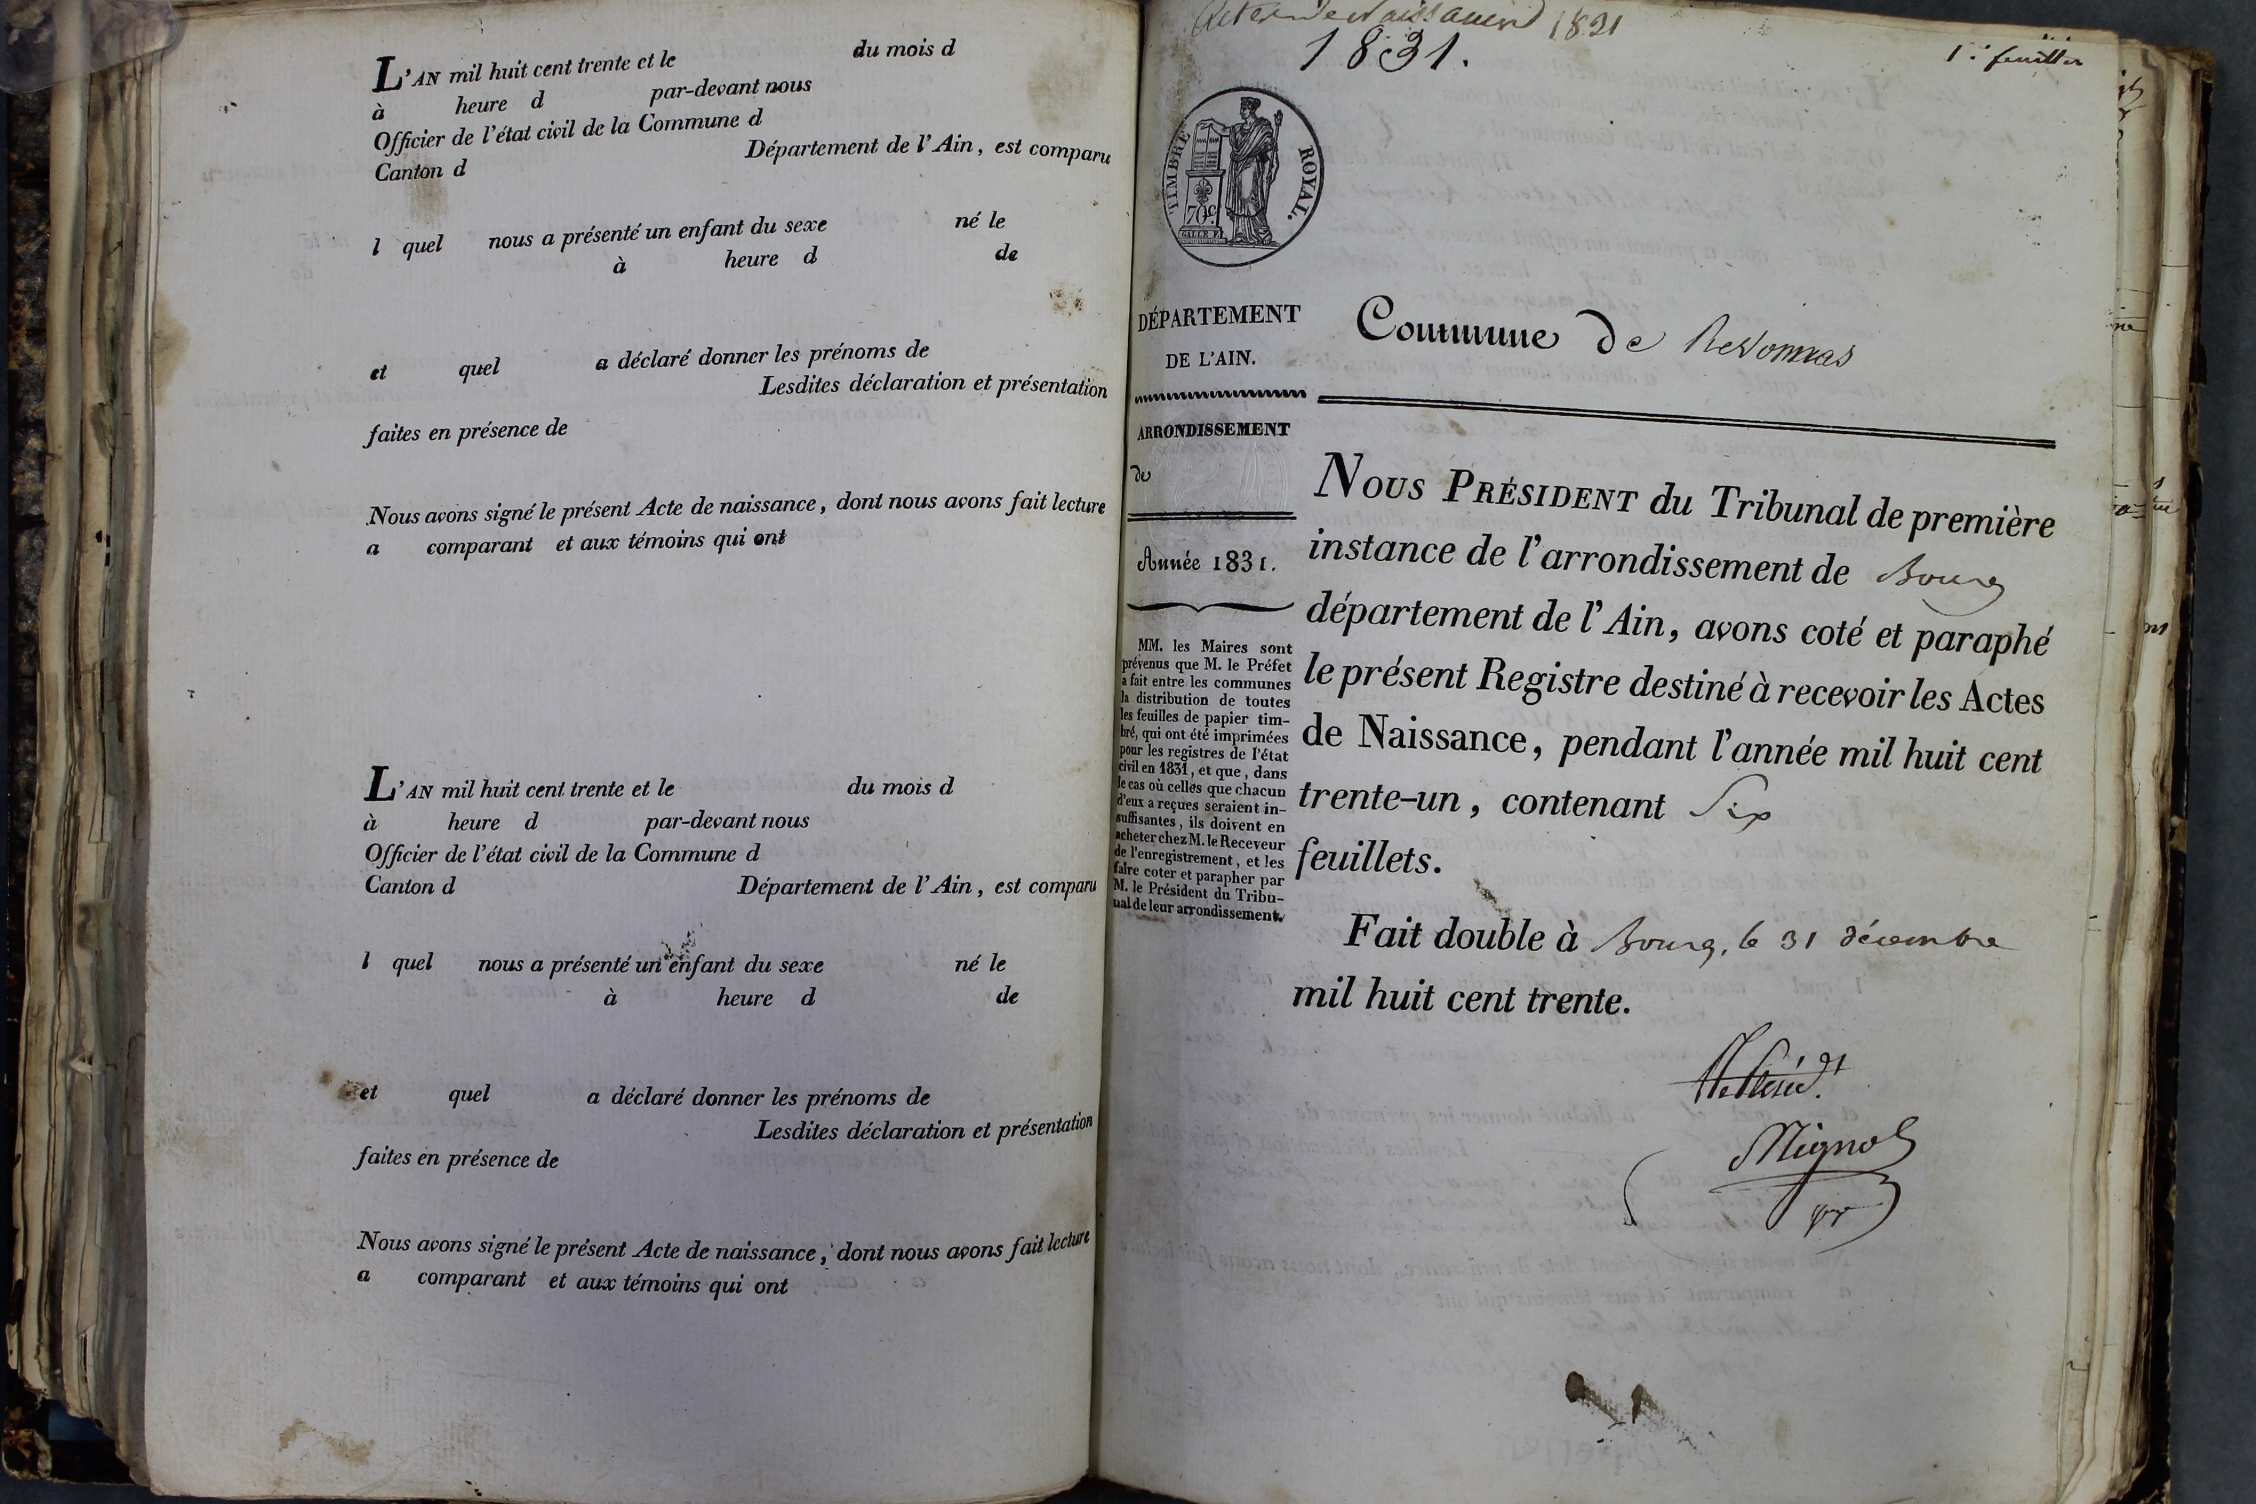 L'AN mil huit cent trente et le du mois d
à heure d par-devant nous
Officier de l'état civil de la Commune d
Canton d Département de l'Ain, est comparu
l quel nous a présenté un enfant du sexe né le
à heure d de
et quel a déclaré donner les prénoms de
Lesdites déclaration et présentation
faites en présence de
Nous avons signé le présent Acte de naissance, dont nous avons fait lecture
a comparant et aux témoins qui ont
L'AN mil huit cent trente et le du mois d
à heure d par-devant nous
Officier de l'état civil de la Commune d
Canton d Département de l'Ain, est comparu
l quel nous a présenté un enfant du sexe né le
à heure d de
et quel a déclaré donner les prénoms de
Lesdites déclaration et présentation
faites en présence de
Nous avons signé le présent Acte de naissance, dont nous avons fait lecture
a comparant et aux témoins qui ont
Actes de Naissances 1831
1831.
1er feuillet
TIMBRE ROYAL.
70c.
DÉPARTEMENT
DE L'AIN.
ARRONDISSEMENT
de
Année 1831.
MM. les Maires sont
prévenus que M. le Préfet
a fait entre les communes
la distribution de toutes
les feuilles de papier tim-
bré, qui ont été imprimées
pour les registres de l'état
civil en 1831, et que, dans
le cas où celles que chacun
d'eux a reçues seraient in-
suffisantes, ils doivent en
acheter chez M. le Receveur
de l'enregistrement, et les
faire coter et parapher par
M. le Président du Tribu-
nal de leur arrondissement.
Commune de Revonnas
NOUS PRÉSIDENT du Tribunal de première
instance de l'arrondissement de Bourg
département de l'Ain, avons coté et paraphé
le présent Registre destiné à recevoir les Actes
de Naissance, pendant l'année mil huit cent
trente-un, contenant Six
feuillets.
Fait double à Bourg, le 31 décembre
mil huit cent trente.